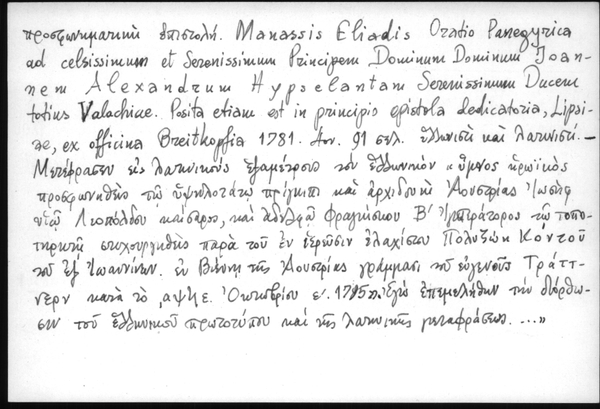 προσφωνηματική ἐπιστολή. Manassis Eliadis Oratio Panegyrica
ad celsissimum et Serenissimum Principem Dominum Dominum Joan-
nem Alexandrum Hypselantam Serenissimum Ducem
totius Valachiae. Posita etiam est in principio epistola dedicatoria, Lipsi-
ae, ex officina Breitkopfia 1781. 91 σελ. ἑλληνιστὶ καὶ λατινιστί. —
Μετέφρασεν εἰς λατινικοὺς ἑξαμέτρους τὸν ἑλληνικὸν « ὕμνος ἡρωϊκὸς
προσφωνηθεὶς τῷ ὑψηλοτάτῳ πρίγκιπι καὶ ἀρχιδουκὶ Αουστρίας Ἰωσὴφ
υἱῷ Λεοπόλδου καίσαρος, καὶ ἀδελφῷ Φραγκίσκου Β′ Ἰμπεράτορος τῷ τοπο-
τηρητῇ στιχουργηθεὶς παρὰ τοῦ ἐν ἱερεῦσιν ἐλαχίστου Πολυζώη Κόντου
τοῦ ἐξ Ἰωαννίνων. ἐν Βιέννῃ τῆς Αουστρίας γράμμασι τοῦ εὐγενοῦς Τράττ-
νερν κατὰ τὸ ,αψϟε. Ὀκτωβρίου 1795». Ἐγὼ ἐπεμελήθην τὴν διόρθω-
σιν τοῦ ἑλληνικοῦ πρωτοτύπου καὶ τῆς λατινικῆς μεταφράσεως. ...»